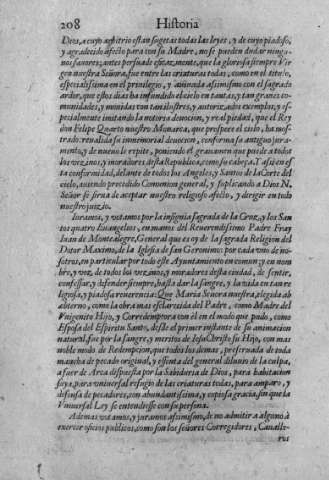 208 Historia
Deos, a cuyo arbitrio estan sugetas todas las leyes, y de cuyo piadoso,
y agradecido afecto para con su Madre, no se pueden dudar ningu-
nos fauores; antes persuade eficazmente, que la gloriosa siempre Vir
gen nuestra Señora, fue entre las criaturas todas, como en el titulo,
especialissima en el priuilegio, y mouida assimismo con el sagrado
ardor, que estos dias ha infundido el cielo en tantas, y tan graues co-
munidades, y mouidas con tan ilustres, y autorizados exemplos, y es-
pecialmente imitando la notoria deuocion, y real piedad, que el Rey
don Felipe Quarto nuestro Monarca, que prospere el cielo, ha mos-
trado: reualida su inmemorial deuocion, conforma su antiguo jura-
mento, y de nueuo le repite, poniendo el grauamen que puede a todos
los vezinos, y moradores desta Republica, como su cabeça. Y assi en es
ta conformidad, delante de todos los Angeles, y Santos de la Corte del
cielo, auiendo precedido Comunion general, y suplicando a Dios N.
Señor se sirua de aceptar nuestro religioso afecto, y dirigir en todo
nuestro juizio.
Iuramos, y votamos por la insignia sagrada de la Cruz, y los San
tos quatro Euangelios, en manos del Reuerendissimo Padre Fray
Iuan de Montealegre, General que es oy de la sagrada Religion del
Dotor Maximo, de la Iglesia de san Geronimo: por cada vno de no-
sotros, en particular por todo este Ayuntamiento en comun: y en nom
bre, y voz, de todos los vezinos, y moradores desta ciudad, de sentir,
confessar, y defender siempre, hasta dar la sangre, y la vida en tan re
ligiosa, y piadosa reuerencia: Que Maria Señora nuestra, elegida ab
aberno, como la obra mas esclarecida del Padre, como Madre del
Vnigenito Hijo, y Corredemptora con èl en el modo que pudo, como
Esposa del Espiritu Santo, desde el primer instante de su animacion
natural, fue por la sangre, y meritos de Iesu Christo su Hijo, con mas
noble modo de Redempcion, que todos los demas, preseruada de toda
mancha de pecado original, y essenta del general diluuio de la culpa,
a fuer de Arca dispuesta por la Sabiduria de Dios, para habitacion
suya, para vniuersal refugio de las criaturas todas, para amparo, y
difensa de pecadores, con abundantissima, y copiosa gracia, sin que la
Vniuersal Ley se entendiesse con su persona.
Ademas votamos, y juramos assimismo, de no admitir a alguno à
exercer oficios publicos, como son los señores Corregidores, Caualle-
ros